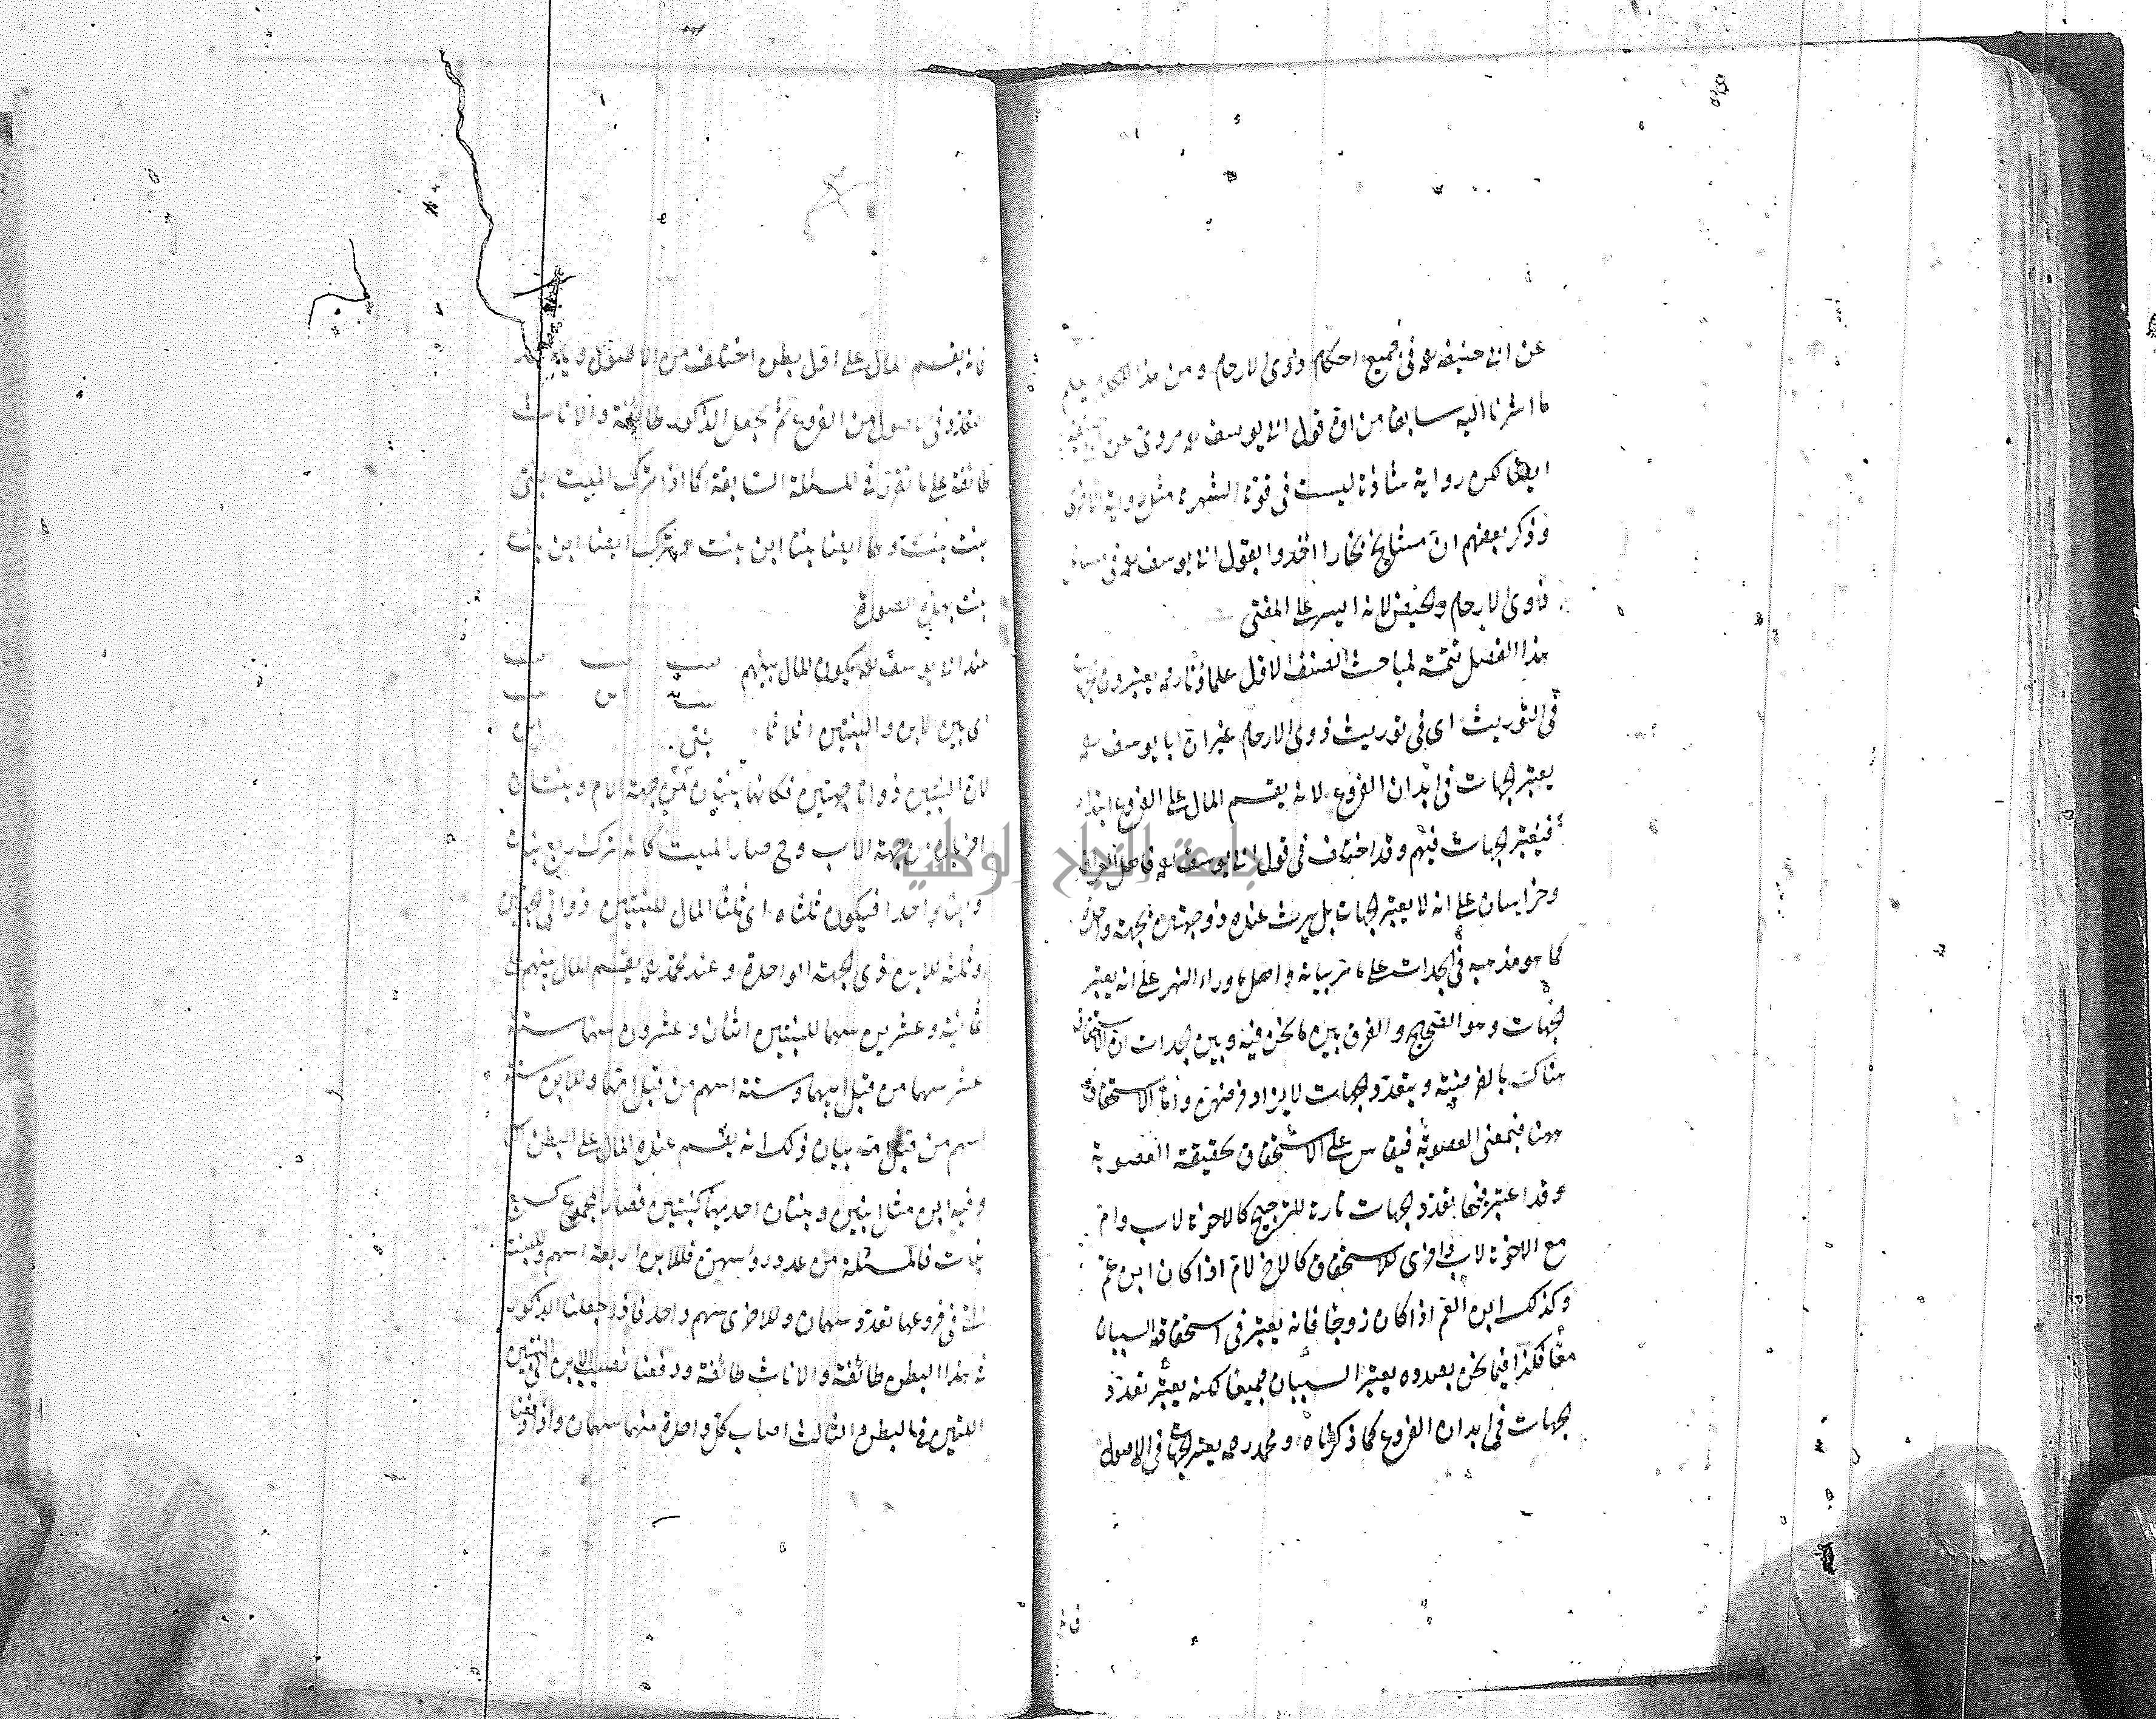 عن ابى حنيفه رحمه فى جميع احكام ذوى الارحام و من هذا
ما اشرنا اليه سابقا من ان قول ابى يوسف رحمه مروى عن
ايضا لكن رواية شاذة ليست فى قوة الشهرة مثل رواية الاخرى
و ذكر بعضهم ان مشايخ بخارا اخذوا بقول ابى يوسف رحمه فى
ذوى الارحام والحيض لانه ايسر على المفتى
هذا الفصل تتمة لمباحث الصنف الاول علماؤنا رحمه يعتبرون
فى التوريث اى فى توريث ذوى الارحام غير ان ابا يوسف رحمه
يعتبر الجهات فى ابدان الفروع لانه يقسم المال على الفروع ابتداء
فيعتبر الجهات فيهم و قد اختلف فى قول ابى يوسف رحمه فاهل العراق
و خراسان على انه لا يعتبر الجهات بل يرث عنده ذو جهتين بجهة واحدة
كما هو مذهبه فى الجدات على ما مر بيانه و اهل ما وراء النهر على انه يعتبر
الجهات و هو الصحيح و الفرق بين ما نحن فيه و بين الجدات ان الاستحقاق
هناك بالفرضية و بتعدد الجهات لا يزاد فرضهن و اما الاستحقاق
ههنا فبمعنى العصوبة فيقاس على الاستحقاق بحقيقة العصوبة
و قد اعتبر فيها تعدد الجهات تارة للترجيح كالاخوة لاب و ام
مع الاخوة لاب و اخرى للاستحقاق كالاخ لام اذا كان ابن عم
و كذلك ابن العم اذا كان زوجا فانه يعتبر فى استحقاقه السببان
معا فكذا فيما نحن بصدده يعتبر السببان جميعا لكنه يعتبر تعدد
الجهات فى ابدان الفروع كما ذكرناه و محمد رحمه يعتبر الجهات فى الاصول
فانه يقسم المال على اول بطن اختلف من الاصول و
العدد فى الاصول من الفروع ثم يجعل الذكور طائفة و الاناث
طائفة على ما تقرر فى المسئلة السابقة كما اذا ترك الميت بنتى
بنت بنت و هما ايضا بنتا ابن بنت و ترك ايضا ابن بنت
بنت بهذه الصورة
عند ابى يوسف رحمه يكون المال بينهم
بنت بنت بنت
بنت ابن بنت
اى بين الابن و البنتين اثلاثا
بنتى ابن
لان البنتين ذواتا جهتين فكانهما بنتان من جهة الام و بنتان
اخريان من جهة الاب و ح صار الميت كانه ترك اربع بنات
و ابنا واحدا فيكون ثلثاه اى ثلثا المال للبنتين ذواتى الجهتين
و ثلثه للابن ذى الجهة الواحدة و عند محمد رحمه يقسم المال بينهم على
ثمانية و عشرين سهما للبنتين اثنان و عشرون سهما ستة
عشر سهما من قبل ابيهما و ستة اسهم من قبل امهما و للابن ستة
اسهم من قبل امه بيان ذلك انه يقسم عنده المال على البطن
و فيه ابن مثل ابنين و بنتان احديهما كبنتين فصار المجموع كسبع
بنات فالمسئلة من عدد رؤسهن فللابن اربعة اسهم وللبنت
التى فى فروعها تعدد سهمان و للاخرى سهم واحد فاذا جعلنا الذكور
فى هذا البطن طائفة و الاناث طائفة و دفعنا نصيب الابن الى البنتين
اللتين فى البطن الثالث اصاب كل واحدة منهما سهمان و اذا دفعنا